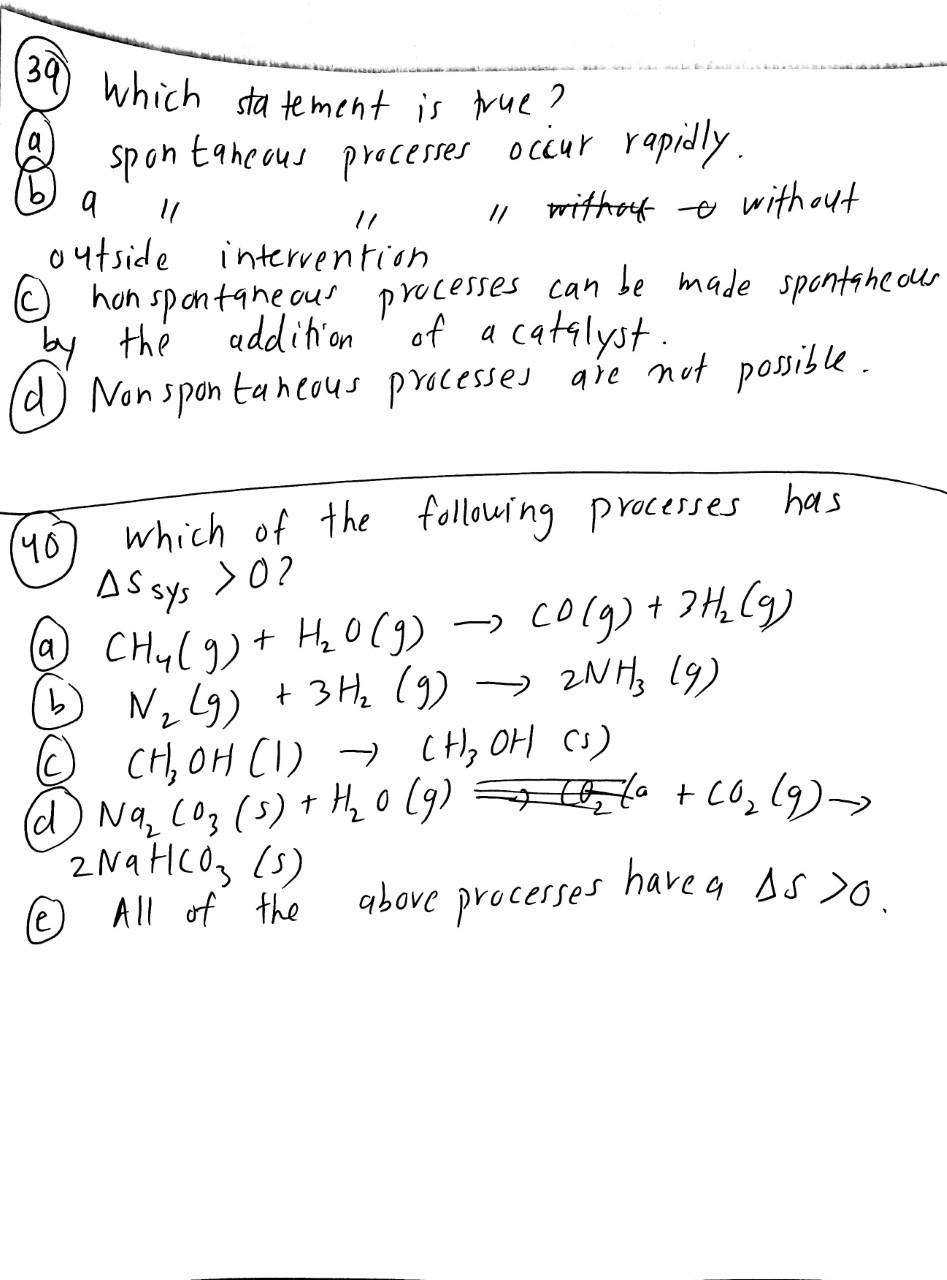 39 Which statement is true?
a spontaneous processes occur rapidly.
b a " " " without without
outside intervention
c nonspontaneous processes can be made spontaneous
by the addition of a catalyst.
d Nonspontaneous processes are not possible.
40 which of the following processes has
ΔS sys > 0?
a CH₄(g) + H₂O(g) → CO(g) + 3H₂(g)
b N₂(g) + 3H₂(g) → 2NH₃(g)
c CH₃OH(l) → CH₃OH(s)
d Na₂CO₃(s) + H₂O(g) → CO₂(a + CO₂(g) →
2NaHCO₃(s)
e All of the above processes have a ΔS >0.